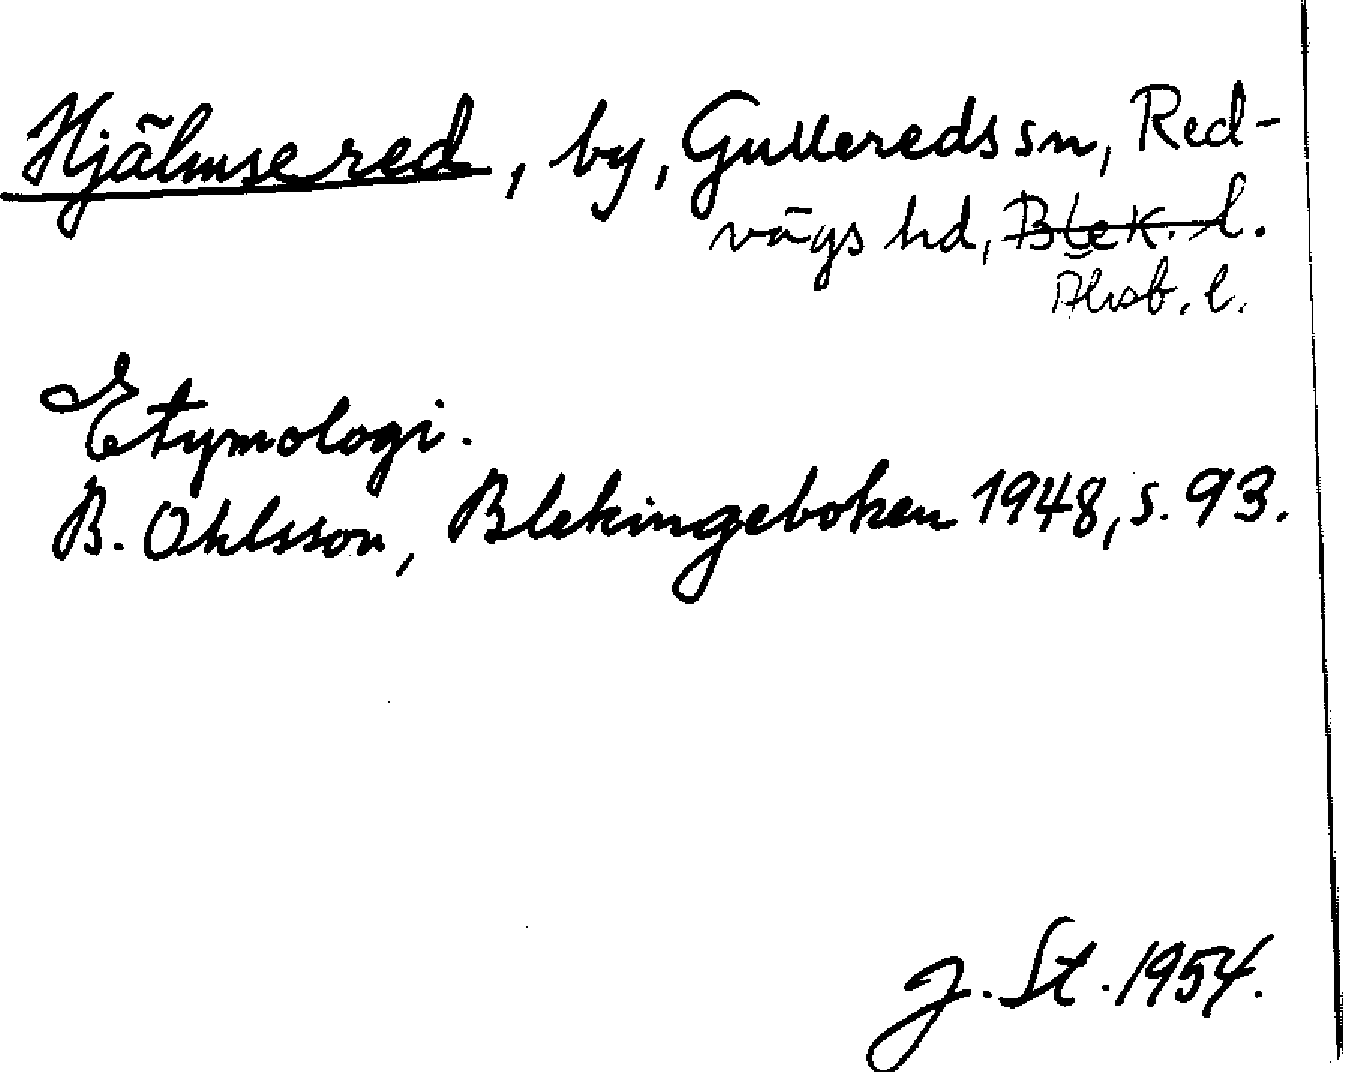 Hjälmsered, by, Gullereds sn, Red-
vägs hd, Blek. l.
Älvsb. l.
Etymologi.
B. Ohlsson, Blekingeboken 1948, s. 93.
J. St. 1954.